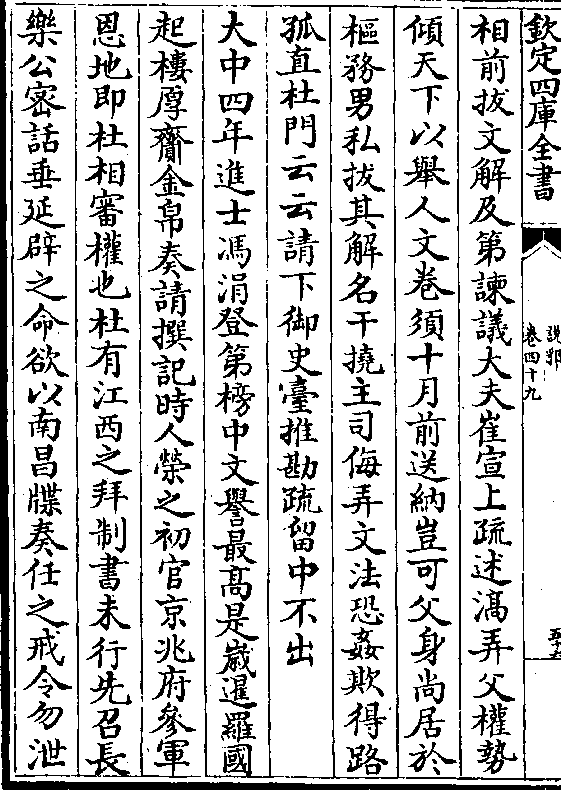 欽定四庫全書
說郛
卷四十九
相前拔文解及第諫議大夫崔宣上疏述滈弄父權勢
傾天下以舉人文卷須十月前送納豈可父身尚居於
樞務男私拔其解名干撓主司侮弄文法恐姦欺得路
孤直杜門云云請下御史臺推勘疏留中不出
大中四年進士馮涓登第榜中文譽最高是嵗暹羅國
起樓厚齎金帛奏請撰記時人榮之初官京兆府參軍
恩地即杜相審權也杜有江西之拜制書未行先召長
樂公密話垂延辟之命欲以南昌牒奏任之戒令勿泄